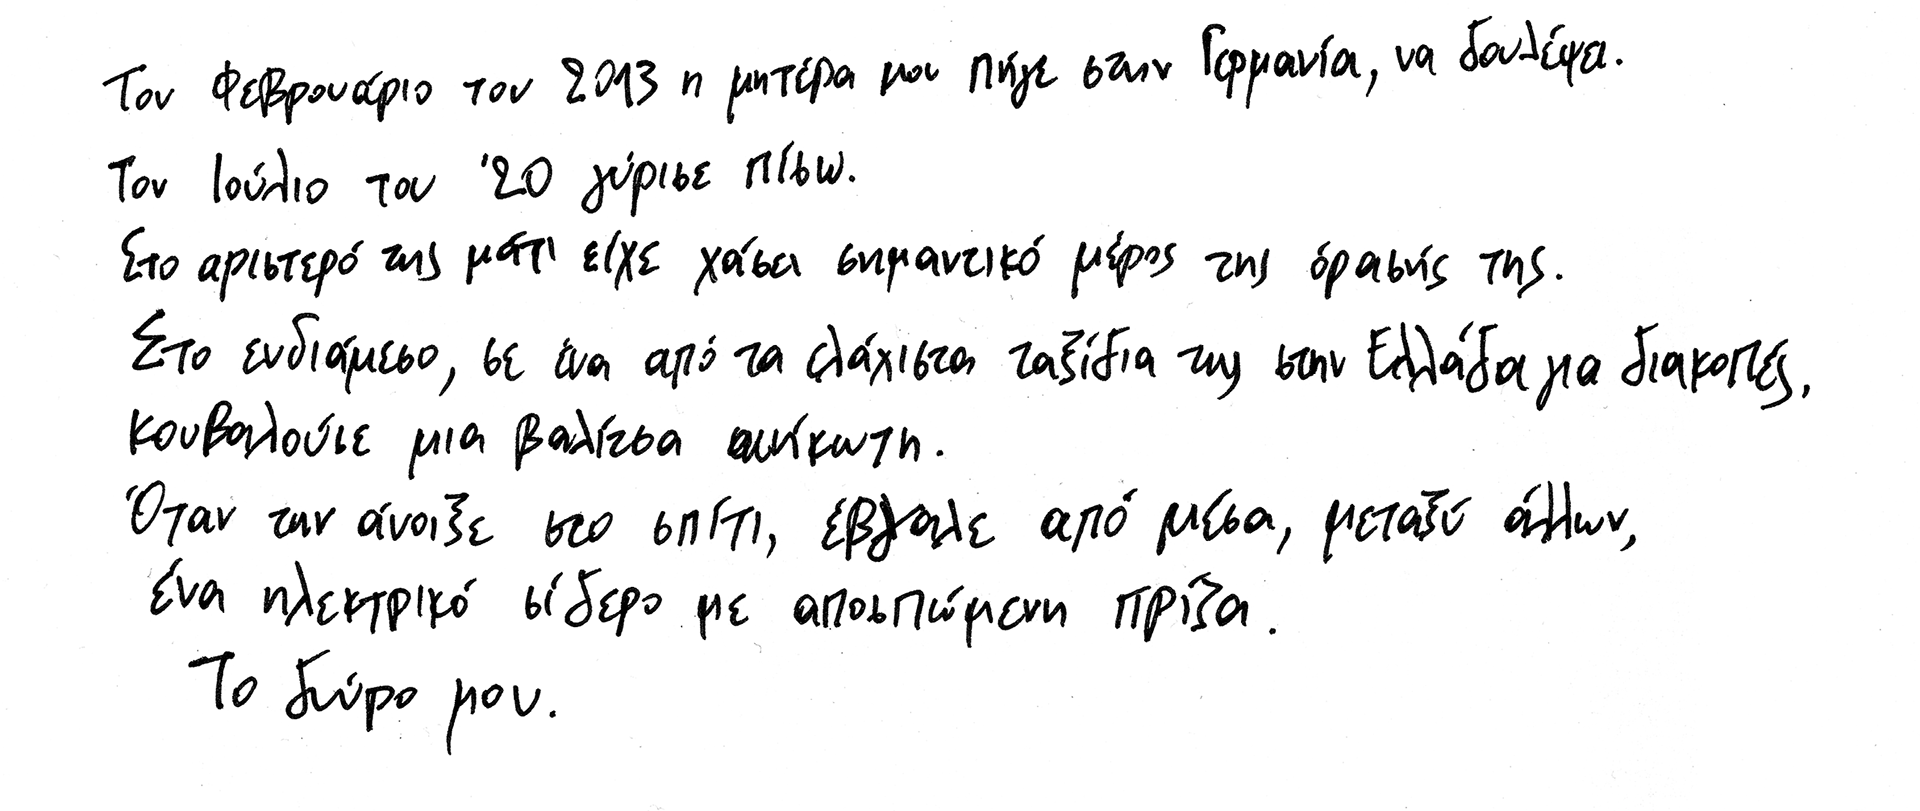 Τον Φεβρουάριο του 2013 η μητέρα μου πήγε στην Γερμανία, να δουλέψει.
Τον Ιούλιο του '20 γύρισε πίσω.
Στο αριστερό της μάτι είχε χάσει σημαντικό μέρος της όρασής της.
Στο ενδιάμεσο, σε ένα από τα ελάχιστα ταξίδια της στην Ελλάδα για διακοπές,
κουβαλούσε μια βαλίτσα ασήκωτη.
Όταν την άνοιξε στο σπίτι, έβγαλε από μέσα, μεταξύ άλλων,
ένα ηλεκτρικό σίδερο με αποσπώμενη πρίζα.
Το δώρο μου.